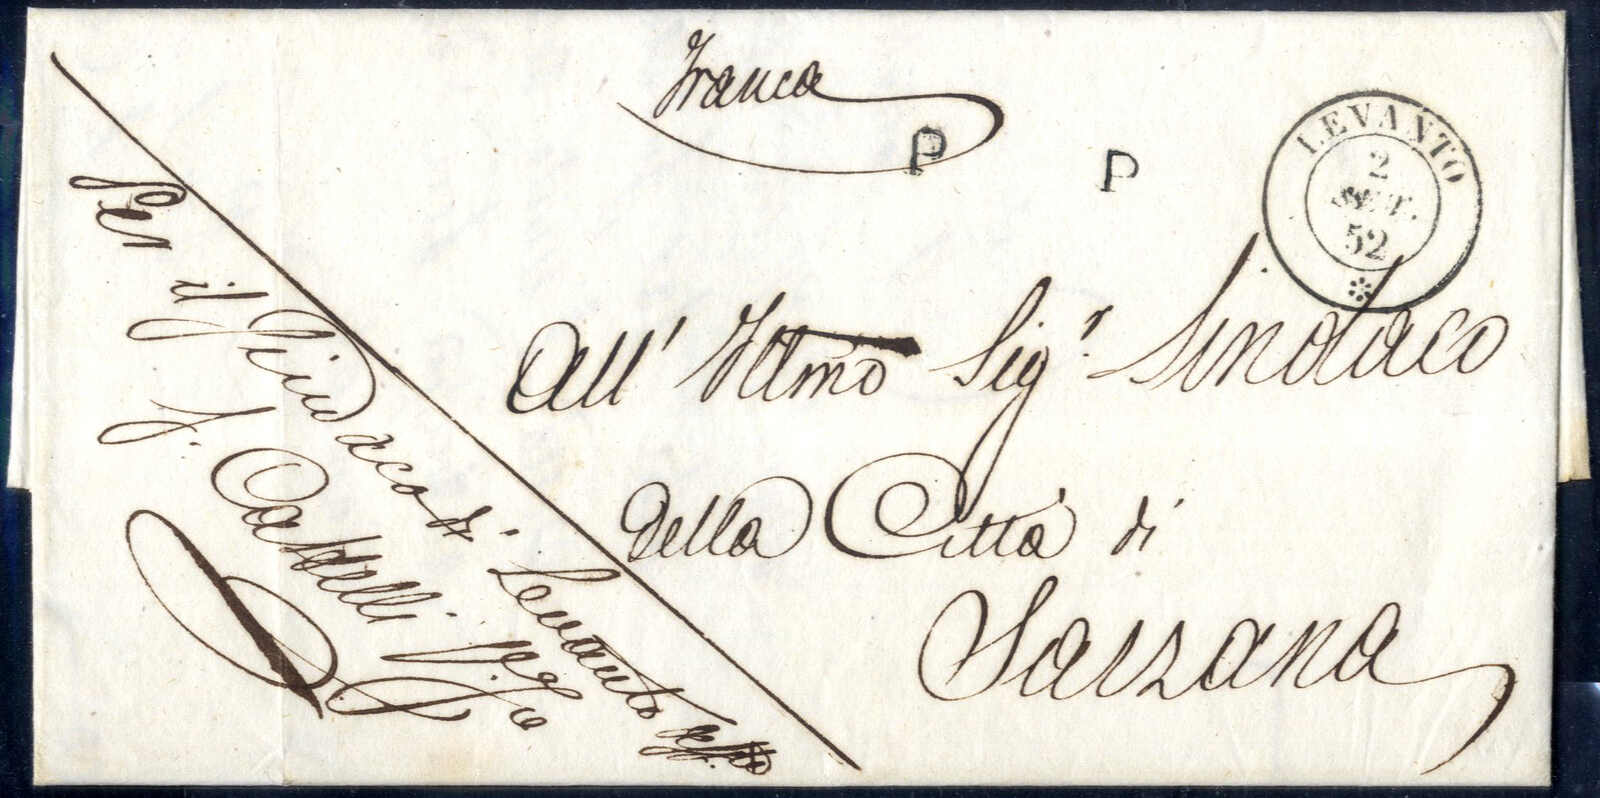 Franca
P P
LEVANTO
2
SET.
52
All' Illmo Sigr. Sindaco
della Città di
Sarzana
Per il Sindaco di Levanto
G. Castelli V.